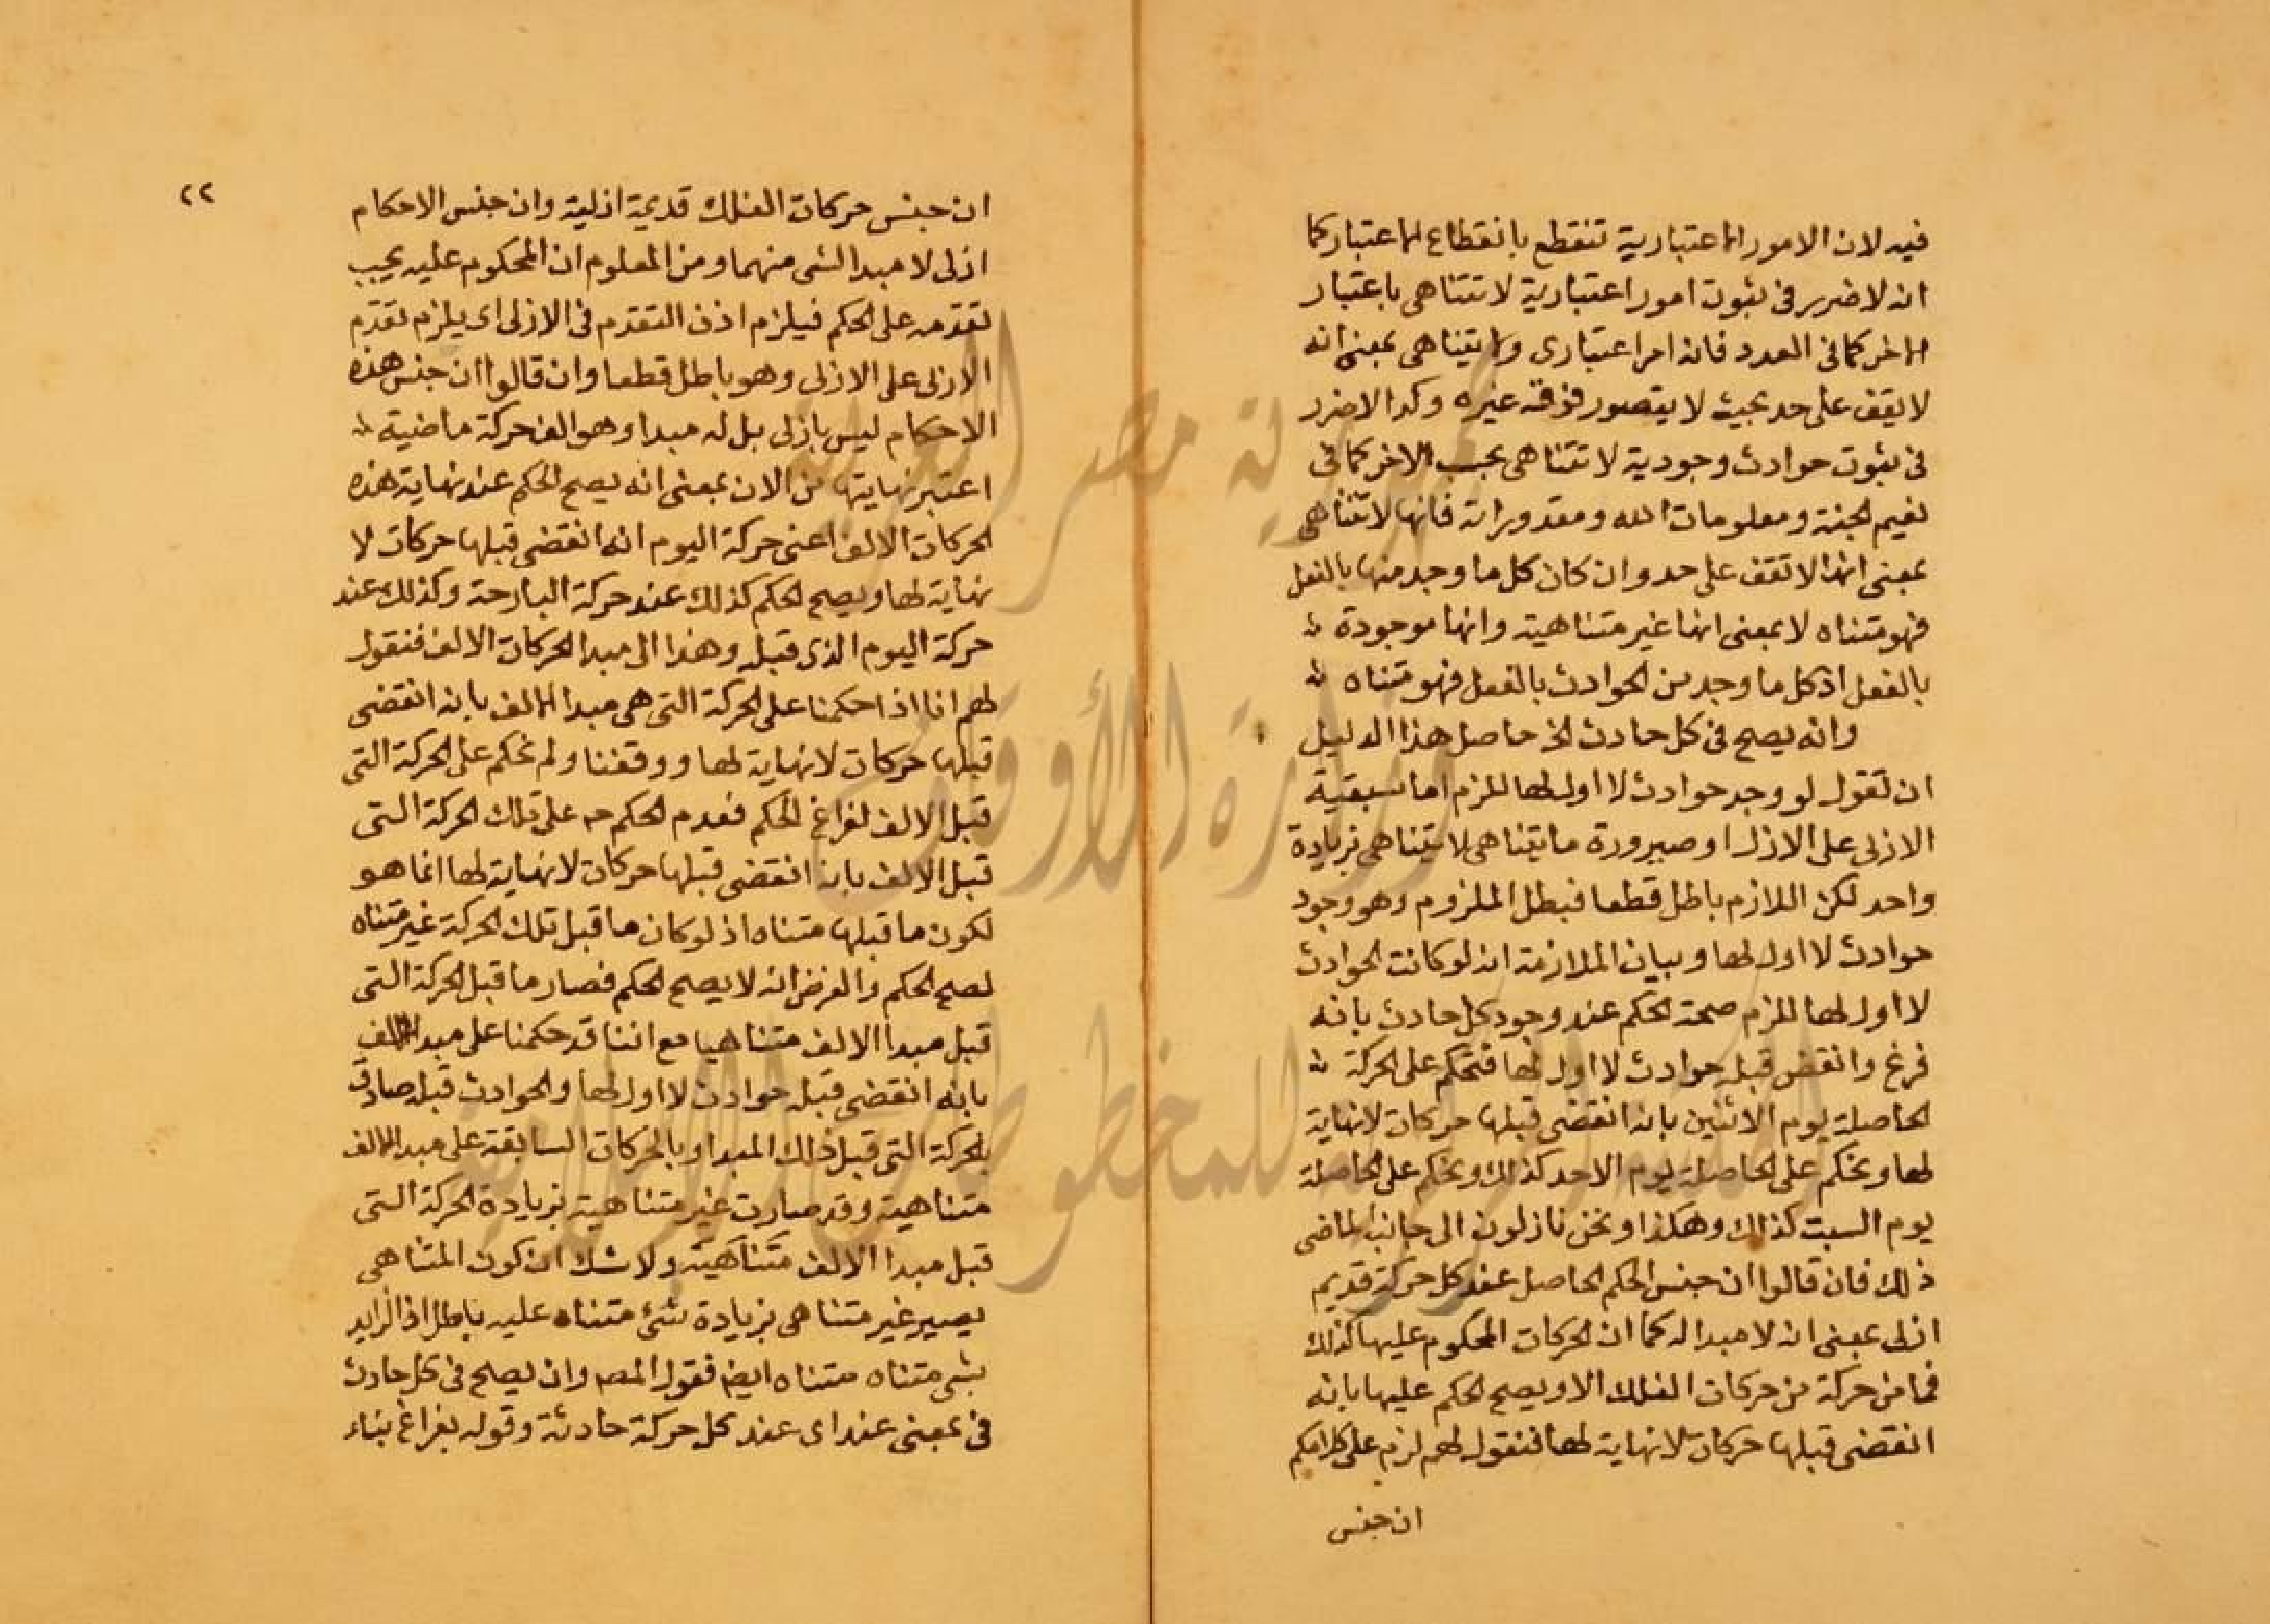 فيه لان الامور الاعتبارية تنقطع بانقطاع الاعتبار كما
انه لا ضرر في ثبوت امور اعتبارية لا تتناهى باعتبار
الاخر كما في العدد فانه امر اعتبارى ولا يتناهى بمعنى انه
لا يقف على حد بحيث لا يتصور فوقه غيره وكذا لا ضرر
في ثبوت حوادث وجودية لا تتناهى بحسب الاخر كما في
نعيم الجنة ومعلومات الله ومقدوراته فانها لا تتناهى
بمعنى انها لا تقف على حد وان كان كل ما وجد منها بالفعل
فهو متناه لا بمعنى انها غير متناهية وانها موجودة
بالفعل اذ كل ما وجد من الحوادث بالفعل فهو متناه
وانه يصح في كل حادث الخ حاصل هذا الدليل
ان تقول لو وجد حوادث لا اول لها للزم اما سبقية
الازلى على الازل او صيرورة ما يتناهى لا يتناهى بزيادة
واحد لكن اللازم باطل قطعا فبطل الملزوم وهو وجود
حوادث لا اول لها وبيان الملازمة انه لو كانت الحوادث
لا اول لها للزم صحة الحكم عند وجود كل حادث بانه
فرغ وانقضى قبله حوادث لا اول لها فتحكم على الحركة
الحاصلة يوم الاثنين بانه انقضى قبلها حركات لا نهاية
لها ونحكم على الحاصلة يوم الاحد كذلك ونحكم على الحاصلة
يوم السبت كذلك وهكذا ونحن نازلون الى جانب الماضى
ذلك فان قالوا ان جنس الحكم الحاصل عند كل حركة قديم
ازلى بمعنى انه لا مبدا له كما ان الحركات المحكوم عليها كذلك
فما من حركة من حركات الفلك الا ويصح الحكم عليها بانه
انقضى قبلها حركات لا نهاية لها فنقول لهم لزم على كلامكم
ان جنس
٢٢
ان جنس حركات الفلك قديمة ازلية وان جنس الاحكام
ازلى لا مبدا لشى منهما ومن المعلوم ان المحكوم عليه يجب
تقدمه على الحكم فيلزم اذن التقدم في الازلى اى يلزم تقدم
الازلى على الازلى وهو باطل قطعا وان قالوا ان جنس هذه
الاحكام ليس بازلى بل له مبدا وهو الف حركة ماضية
اعتبر نهايتها من الان بمعنى انه يصح الحكم عند نهاية هذه
الحركات الالف اعنى حركة اليوم انه انقضى قبلها حركات لا
نهاية لها ويصح الحكم كذلك عند حركة البارحة وكذلك عند
حركة اليوم الذى قبله وهذا الى مبدا الحركات الالف فنقول
لهم انا اذا حكمنا على الحركة التى هى مبدا الالف بانه انقضى
قبلها حركات لا نهاية لها ووقفنا ولم نحكم على الحركة التى
قبل الالف لفراغ الحكم فعدم الحكم ح على تلك الحركة التى
قبل الالف بانه انقضى قبلها حركات لا نهاية لها انما هو
لكون ما قبلها متناه اذ لو كان ما قبل تلك الحركة غير متناه
لصح الحكم والفرض انه لا يصح الحكم فصار ما قبل الحركة التى
قبل مبدا الالف متناهيا مع اننا قد حكمنا على مبدا الالف
بانه انقضى قبله حوادث لا اول لها والحوادث قبله صادق
بالحركة التى قبل ذلك المبدا وبالحركات السابقة على مبدا الالف
متناهية وقد صارت غير متناهية بزيادة الحركة التى
قبل مبدا الالف متناهية ولا شك ان كون المتناهى
يصير غير متناهى بزيادة شئ متناه عليه باطل اذ الزايد
بشى متناه متناه ايضا فقول المص وان يصح في كل حادث
في بمعنى عند اى عند كل حركة حادثة وقوله بفراغ بناء